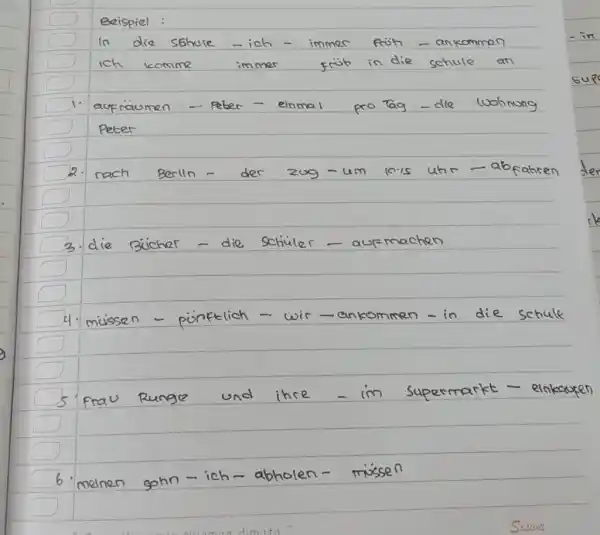 Beispiel :
In die schule - ich - immer früh - ankommen
ich komme immer früb in die schule an
- in
sup
1. aufräumen - Peter - einmal pro Tag - die Wohnung
Peter
2. nach Berlin - der zug - um 10.15 uhr - abfahren
der
3. die Bücher - die Schüler - aufmachen
4. müssen - pünktlich - wir - ankommen - in die schule
5 Frau Runge und ihre - im Supermarkt - einkaufen
6. meinen sohn - ich - abholen - müssen